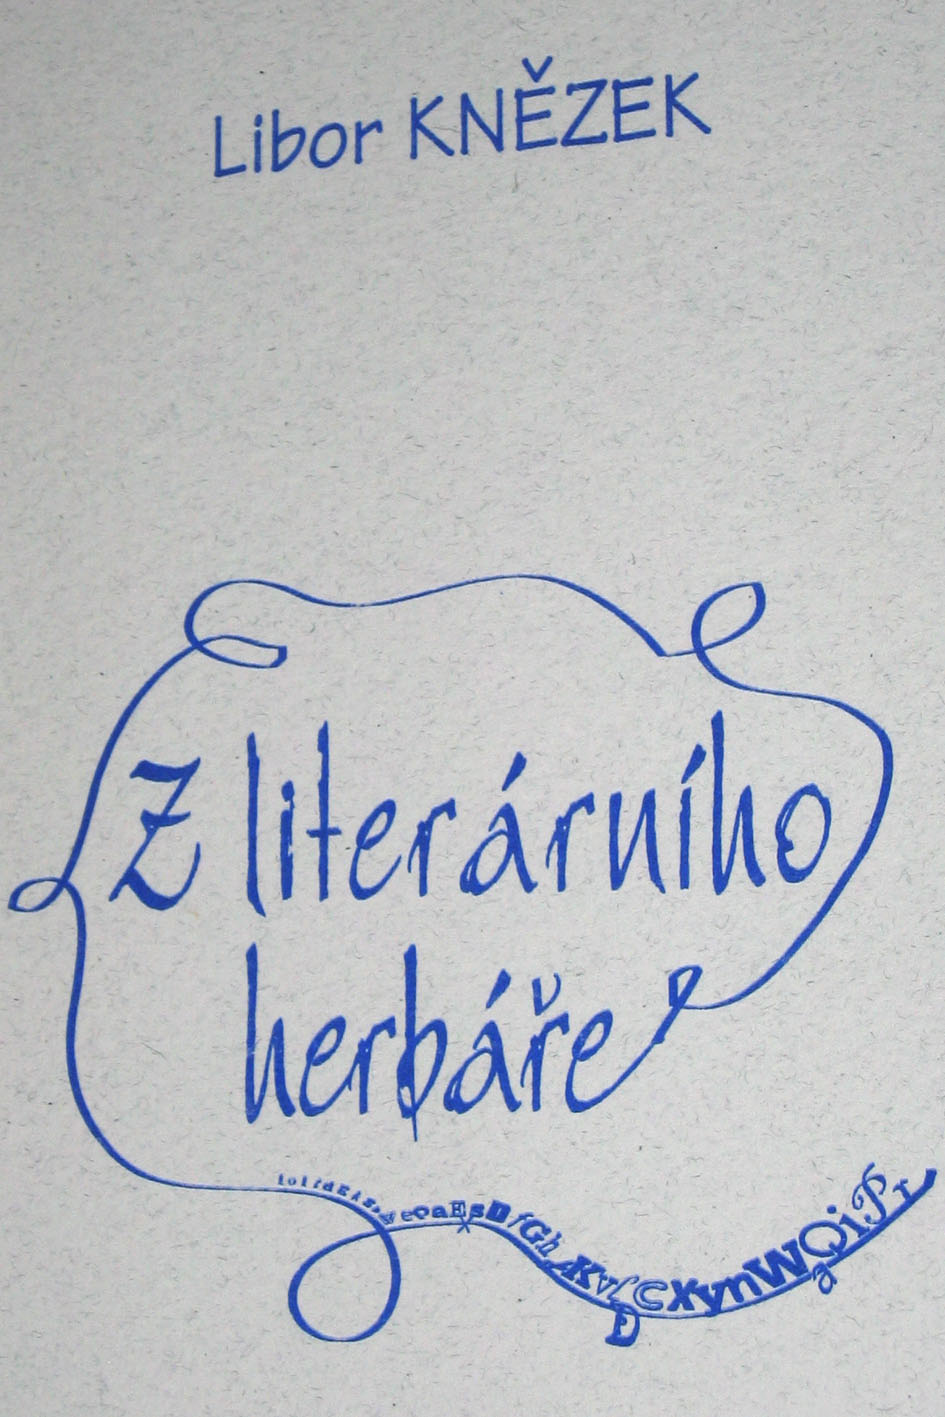 Libor KNĚZEK
Z literárního
herbáře